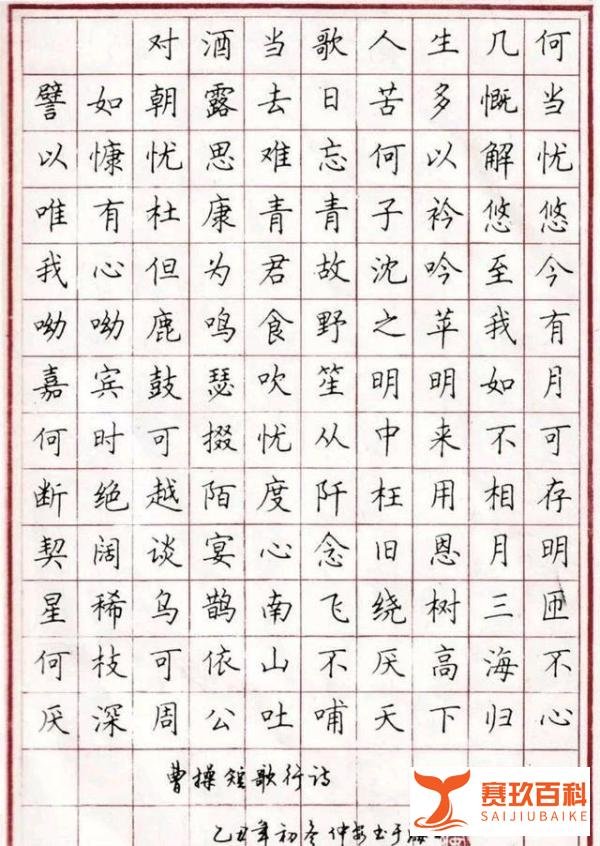 对酒当歌人生几何
譬如朝露去日苦多慨当
以慷忧思难忘何以解忧
唯有杜康青青子衿悠悠
我心但为君故沈吟至今
呦呦鹿鸣食野之苹我有
嘉宾鼓瑟吹笙明明如月
何时可掇忧从中来不可
断绝越陌度阡枉用相存
契阔谈宴心念旧恩月明
星稀乌鹊南飞绕树三匝
何枝可依山不厌高海不
厌深周公吐哺天下归心
曹操短歌行诗
乙丑年初冬仲安书于
赛玖百科
SAIJIUBAIKE